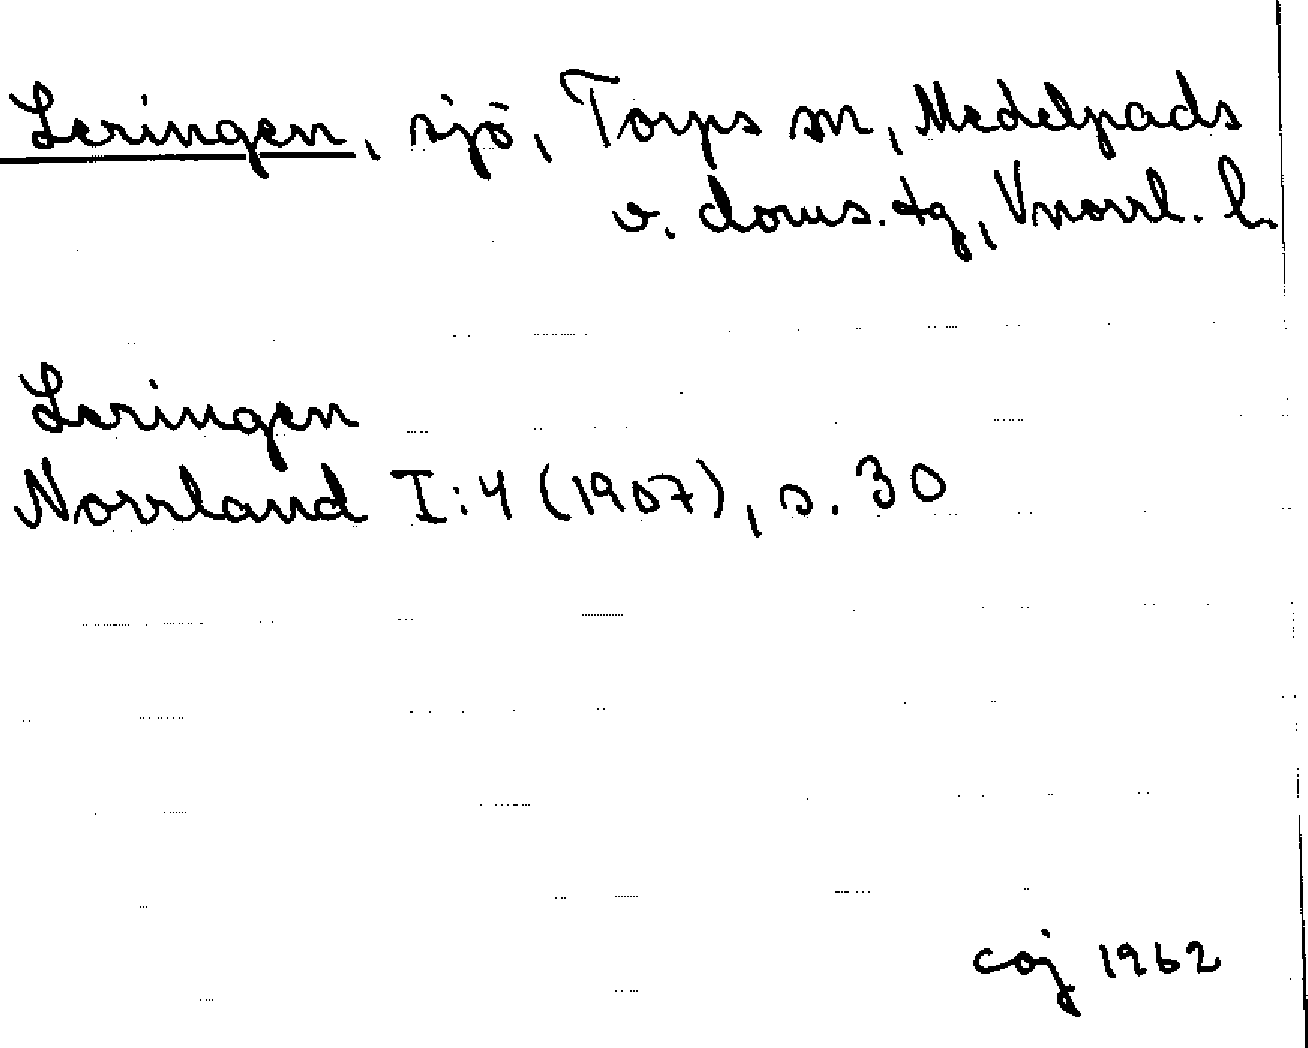 Leringen, sjö, Torps sn, Medelpads
v. doms.dg, Vnorrl. l.
Leringen
Norrland I:4 (1907), s. 30
coj 1962